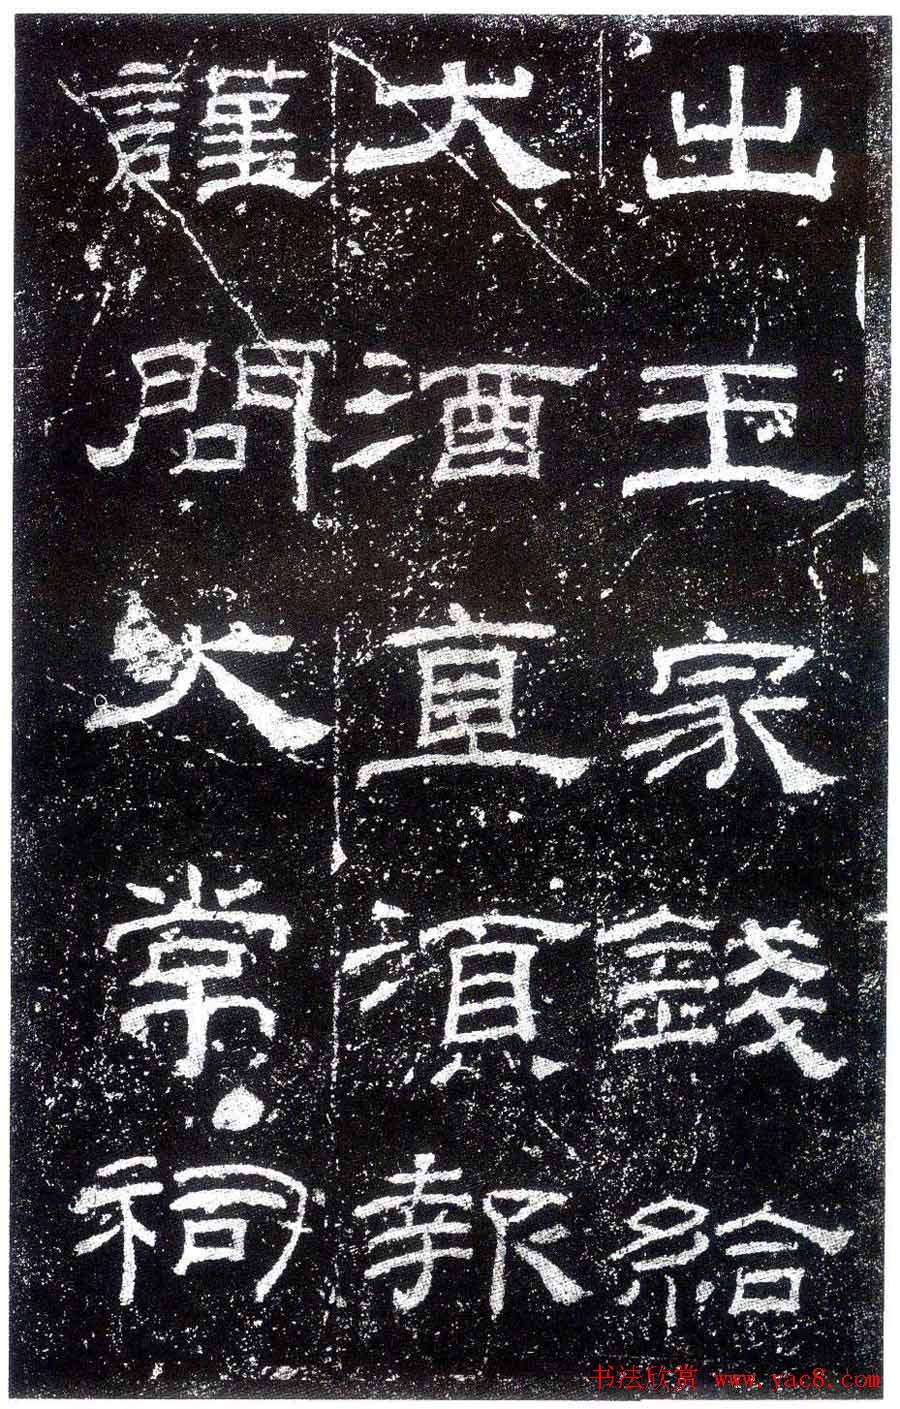 出王家錢給
犬酒直須報
謹問大常祠
书法欣赏 www.yac8.com